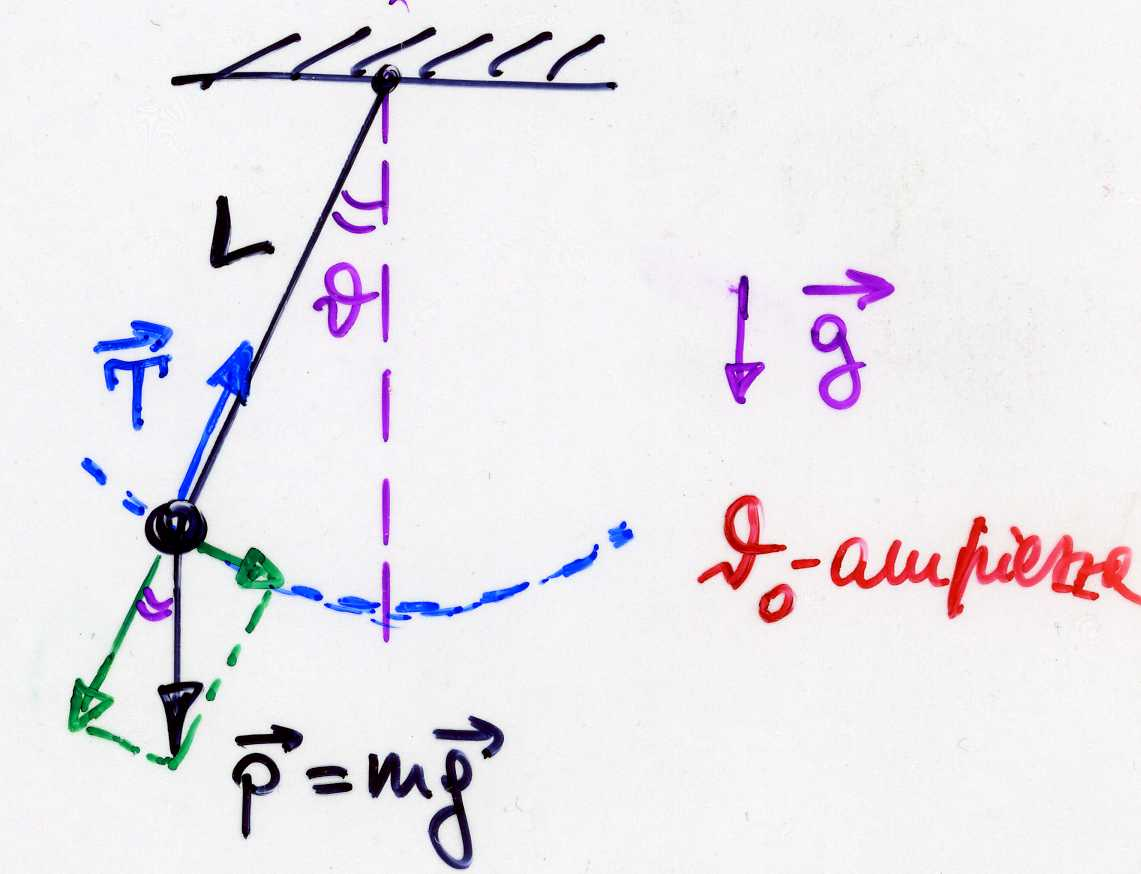 L
ϑ
T⃗
g⃗
ϑ₀ - ampiezza
p⃗ = mg⃗